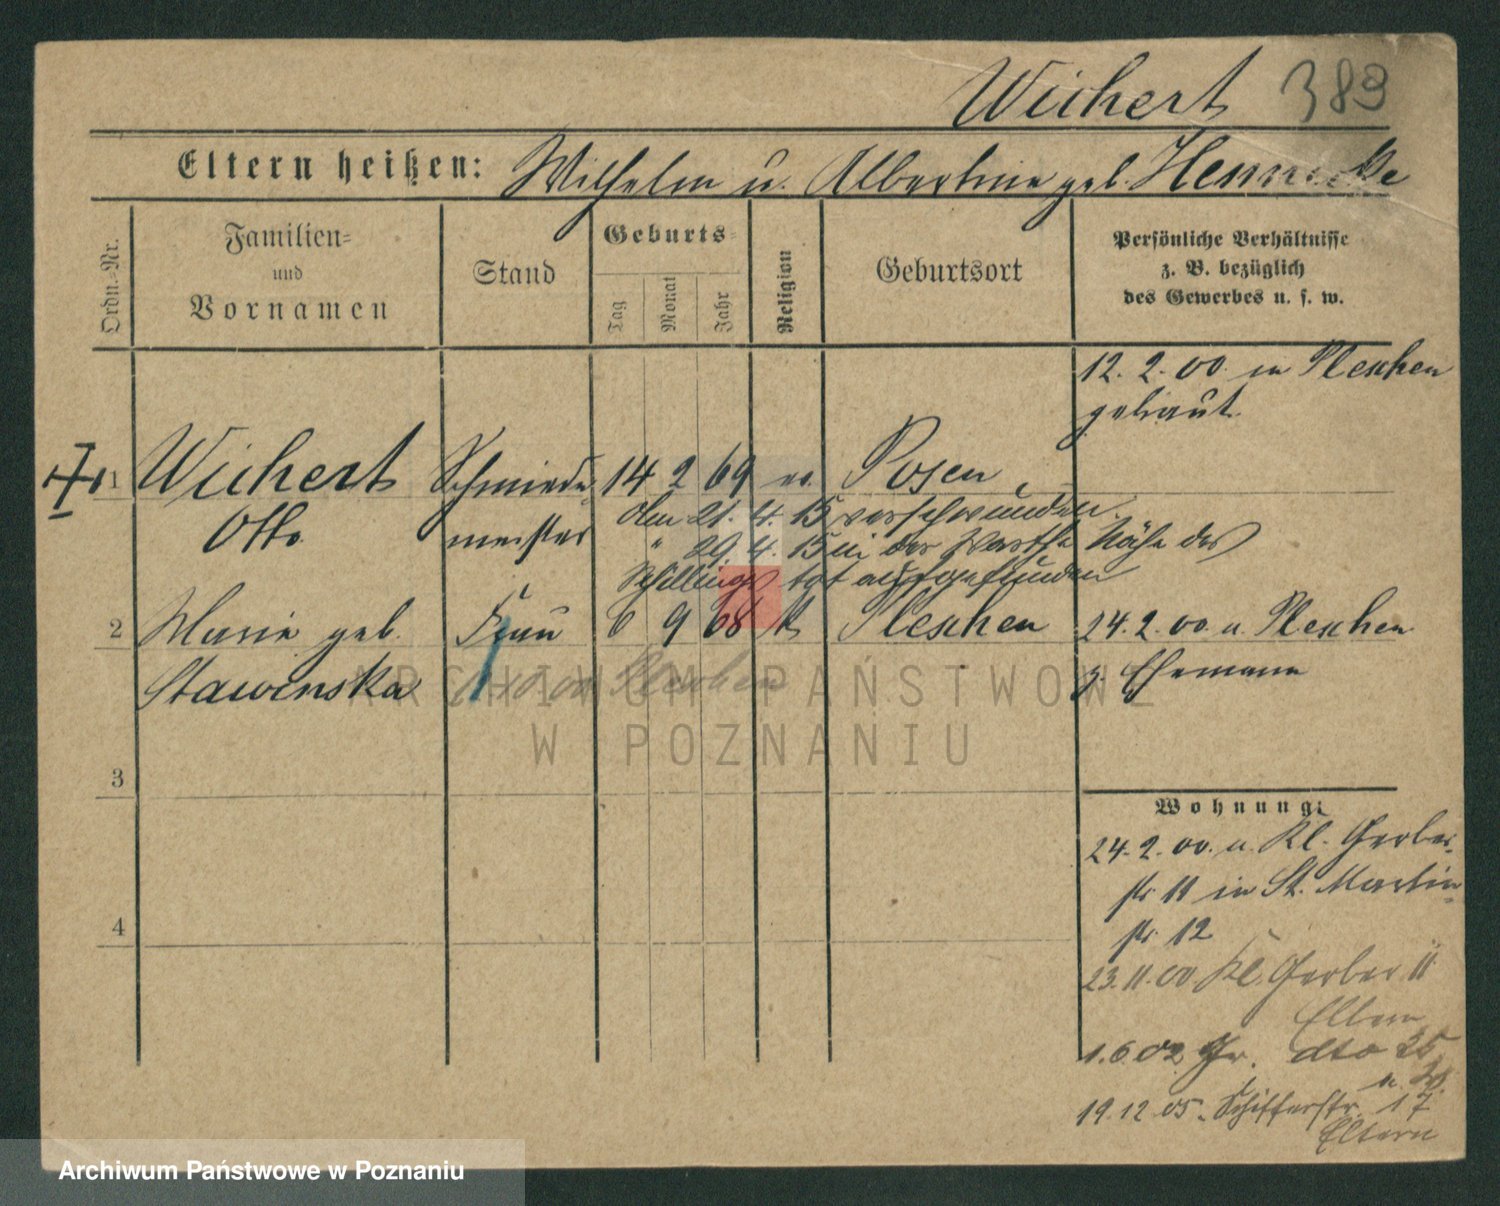 Wichert 383
Eltern heißen: Wilhelm u. Albertine geb. Hennicke
Ordn.-Nr.
Familien-
und
Vornamen
Stand
Geburts-
Tag
Monat
Jahr
Religion
Geburtsort
Persönliche Verhältnisse
z. B. bezüglich
des Gewerbes u. s. w.
12. 2. 00. in Pleschen
getraut
1 Wichert Schmiede 14 2 69 ev. Posen
Otto meister
den 21. 4. 15 verschwunden.
" 29. 4. 15 in der Warthe Nähe des
Schillings tot aufgefunden
2 Marie geb. Frau 6 9 68 k Pleschen 24. 2. 00. v. Pleschen
Stawinska Pleschen z. Ehemann
3
4
Wohnung:
24. 2. 00. v. Kl. Gerber-
str 11 in St. Martin-
str 12
23. 11. 00 Kl. Gerber 11
Eltern
1. 6. 02 Gr. dto 35
19. 12. 05. Schifferstr. 17
Eltern
ARCHIWUM PAŃSTWOWE
W POZNANIU
Archiwum Państwowe w Poznaniu